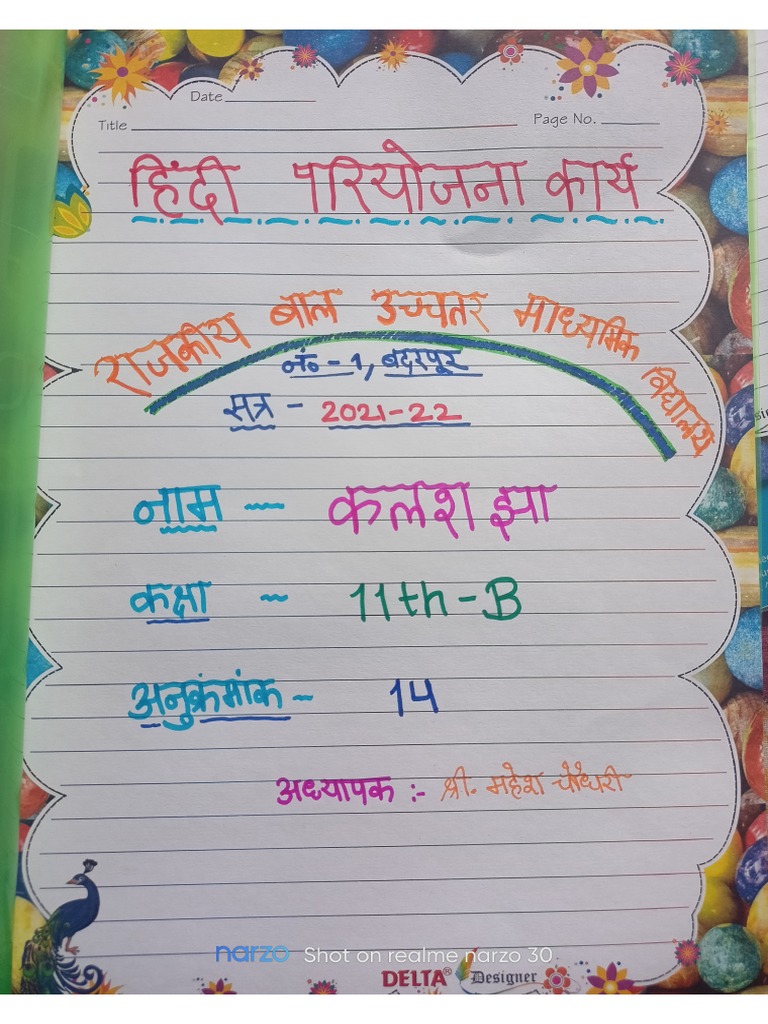 Date
Title
Page No.
हिंदी परियोजना कार्य
राजकीय बाल उच्चतर माध्यमिक विद्यालय
नं० - 1, बदरपूर
सत्र - 2021-22
नाम - कलश झा
कक्षा - 11th - B
अनुक्रंमांक - 14
अध्यापक :- श्री. महेश चौधरी
narzo Shot on realme narzo 30
DELTA® Designer